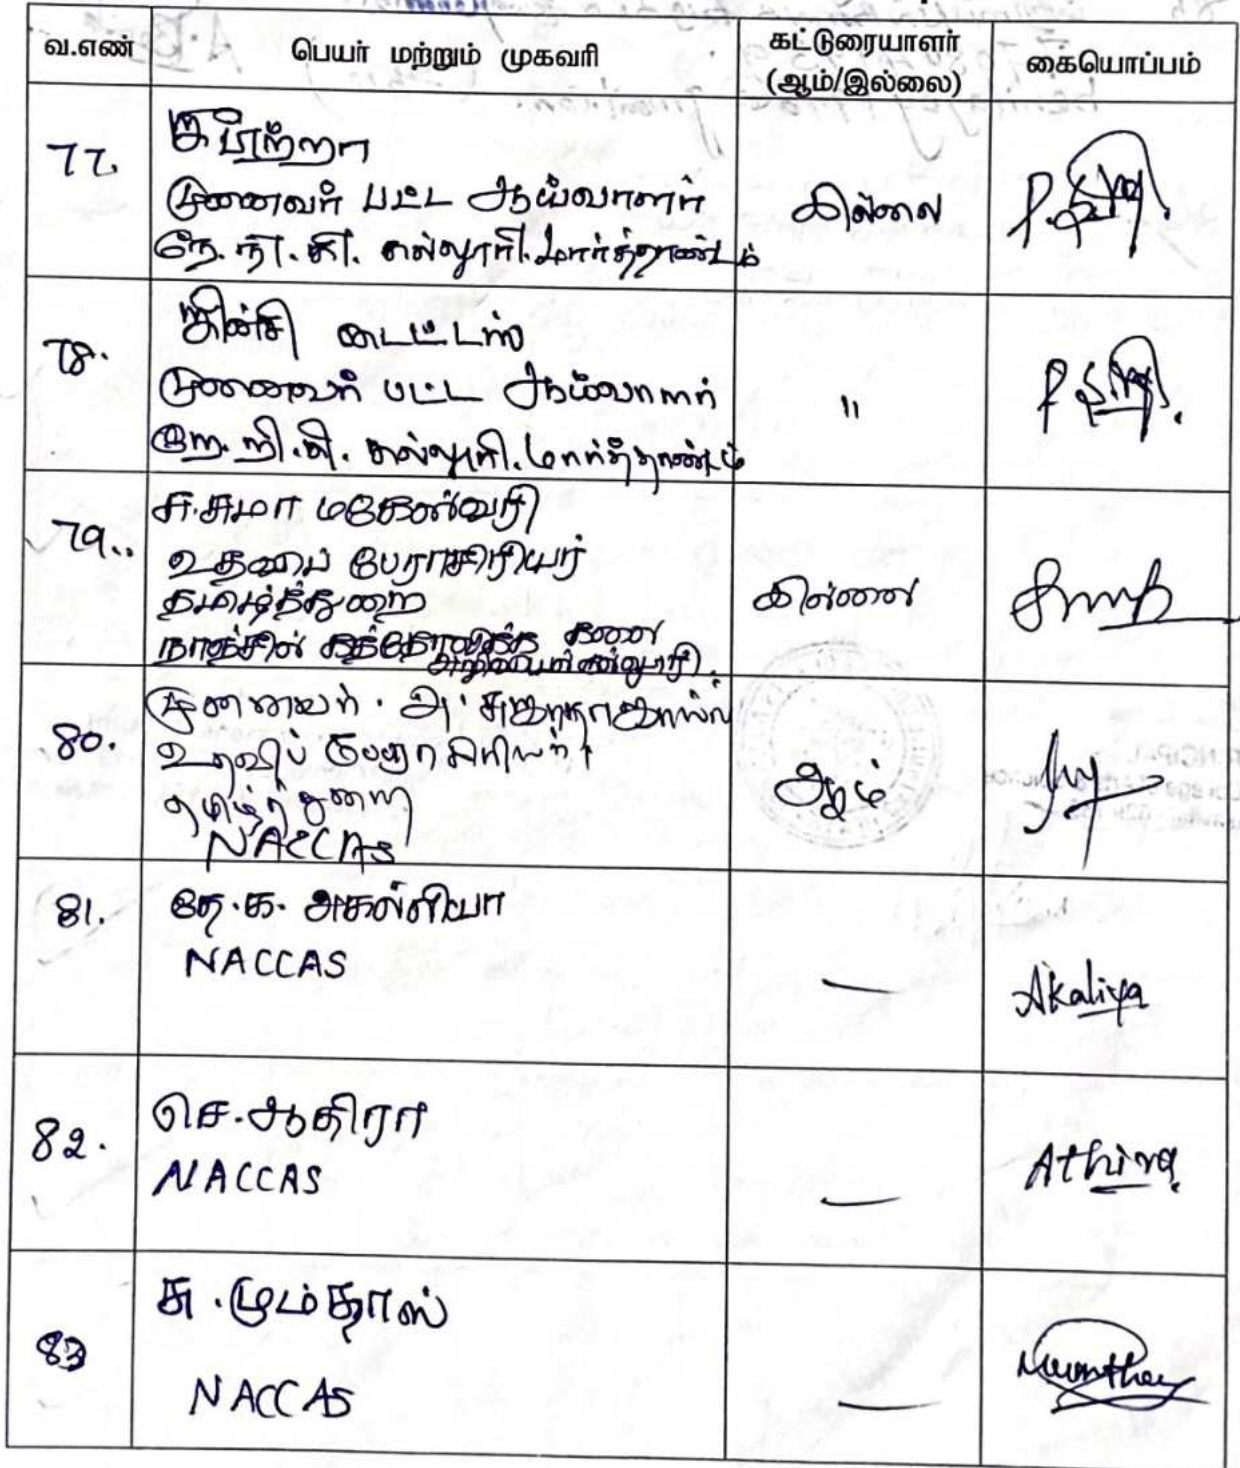 வ.எண் பெயர் மற்றும் முகவரி கட்டுரையாளர் (ஆம்/இல்லை) கையொப்பம்
77.
முனைவர் பட்ட ஆய்வாளர் இல்லை
நே.நி.கி. கல்லூரி. மார்த்தாண்டம்
78. ஜின்சி டைட்டஸ்
முனைவர் பட்ட ஆய்வாளர் "
கல்லூரி. மார்த்தாண்டம்
79. ச.சுமா மகேஸ்வரி
உதவிப் பேராசிரியர்
தமிழ்த்துறை இல்லை
நாஞ்சில் கத்தோலிக்க கலை
அறிவியல் கல்லூரி.
80. முனைவர். அ.
உதவிப் பேராசிரியர்
தமிழ்த்துறை ஆம்
NACCAS
81. தே.க. அகல்லியா
NACCAS — Akaliya
82. செ.ஆதிரா
NACCAS — Athira
83 சு.மும்தாஸ்
NACCAS — Mumthas